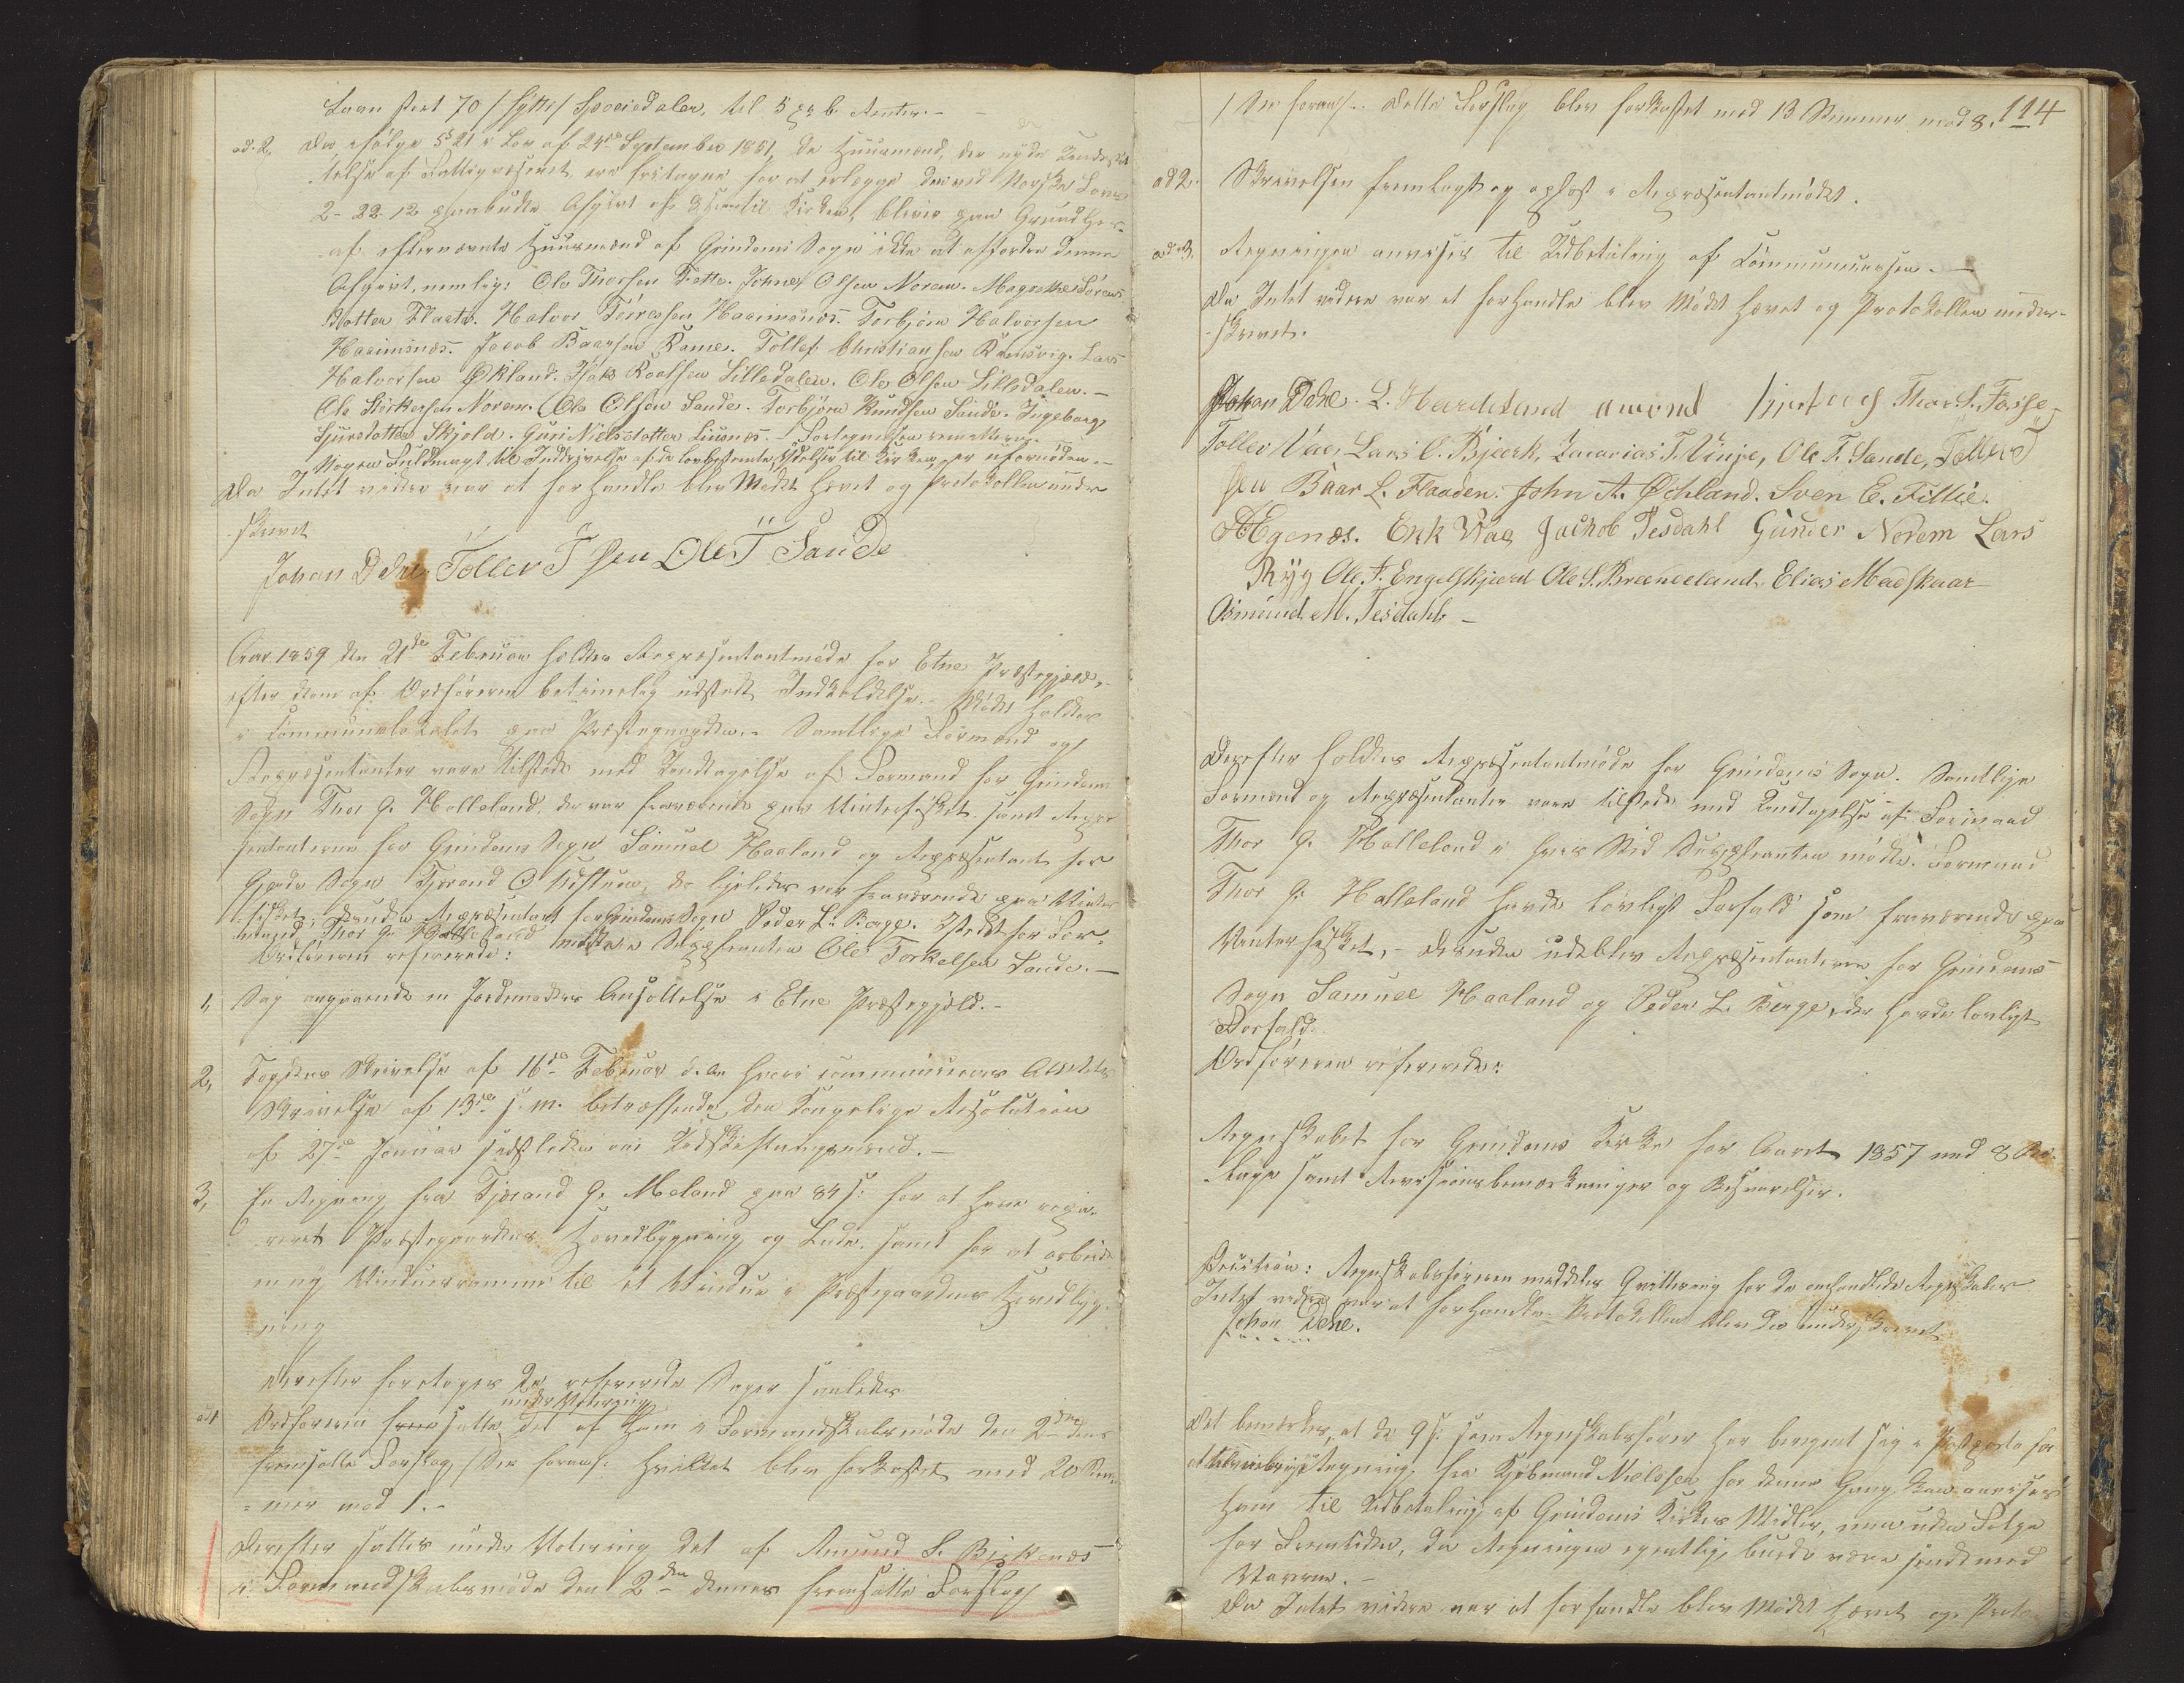 Laan stort 70 /sytti/ Speciedaler, til 5 pr. c. Renter. -
ad. 2, Da ifølge § 21 i Lov af 24de September 1851, de Huusmænd, der nyde Understøt
telse af Fattigvæsenet ere fritagne for at erlægge den ved Norske Lovs
2-22-12 paabudte Afgivt af til Kirken, bliver paa Grund her-
af efternævnte Huusmænd af Grindems Sogn ikke at affordre denne
Afgivt, nemlig: Ole Thorsen Tette. Johnes Olsen Norem. Magrethe Sørens-
dotter Flaate. Halvor Haaimsnæs. Torbjørn Halvorsen
Haaimsnæs. Jacob Baarsen Rame. Tollef Christiansen Ramsvig. Lars
Halvorsen Økland. Isak Roalsen Lilledalen. Ole Olsen Lilledalen. -
Ole Størkersen Norem. Ole Olsen Sande. Torbjørn Knudsen Sande. Ingeborg
Sjursdotter Skjold. Guri Nielsdotter Liusnæs. - Fortegnelsen
Nogen Fuldmagt til Inddrivelse af de lovbestemte Ydelser til Kirken, er ufornøden. -
Da Intet videre var at forhandle blev Mødet hævet og Protokollen under
-skrevet
Johan Dehe. Toller T sen Ole T Sande
Aar 1859 den 21de Februar holdtes Repræsentantmøde for Etne Præstegjeld,
efter dem af Ordføreren betimelig udstedt Indkaldelse. - Mødet holdtes
i Communelokalet paa Præstegaarden. - Samtlige Formænd og
Repræsentanter vare tilstede med Undtagelse af Formand for Grindems
Sogn Thor G. Halleland, der var fraværende paa Vinterfisket samt Repræ
sentanterne for Grindems Sogn Samuel Haaland og Repræsentant for
Gjerde Sogn Tjerand O. der ligeledes var fraværende paa Vinter
-fisket, desuden Repræsentant for Grindems Sogn Peder L. Berge. Istedet for For-
mand Thor G. Halleland mødte Suppleanten Ole Torkelsen Sande. -
Ordføreren refererede:
1, Sag angaaende en Jordemoders Ansættelse i Etne Præstegjeld. -
2, Fogdens Skrivelse af 16de Februar d. A. hvori communiceres Amtets
Skrivelse af 13de s. M. betræffende, den Kongelige Resolution
af 27de Januar sidstleden om Udskiftningsmænd. -
3, En Regning fra Tjerand G. Meland paa 84 s: for at have repa-
reret Præstegaardens Hovedbygning og Lade, samt for at arbeide
en ny Vinduesramme til et Vindue i Præstegaardens Hovedbyg-
ning
Derefter foretoges De refererede Sager saaledes
under Votering
ad 1 Ordføreren satte det af Ham i Formandskabsmøde den 2den dens
fremsatte Forslag, /See foran/. Hvilket blev forkastet med 20 Stem-
-mer mod 1. -
Derefter sattes under Votering det af Amund L. Birkenæs
i Formandskabsmøde den 2den dennes fremsatte Forslag
/See foran/. Dette Forslag blev forkastet med 13 Stemmer mod 8. 114
ad 2. Skrivelsen fremlagt og oplæst i Repræsentantmødet.
ad 3. Regningen anvises til Udbetaling af Communecassen. -
Da Intet videre var at forhandle blev Mødet hævet og Protokollen under-
-skrevet.
Johan Dehe. L. Hardeland amond Thor S. Fosse
Toller Vae, Lars O. Bjerk, Zacarias T. Vinje, Ole T. Sande, Toller T
sen Baar L. Flaaden. John A. Øchland. Sven E. Tillie.
Ægenæs. Erik Vae Jachob Tesdahl Guner Norem Lars
Ryg Ole J. Engelskjerd Ole S. Brenneland Elias Madskaar
Osmund M. Tesdahl -
Derefter holdtes Repræsentantmøde for Grindems Sogn. Samtlige
Formænd og Repræsentanter vare tilstede med Undtagelse af Formand
Thor G. Halleland i hvis Sted Suppleanten mødte. Formand
Thor G. Halleland havde lovligt Forfald som fraværende paa
Vinterfisket, - desuden udeblev Repræsentanterne for Grindems
Sogn Samuel Haaland og Peder L. Berge, der havde lovligt
Forfald.
Ordføreren refererede:
Regnskabet for Grindems Kirke for Aaret 1857 med 8 Bi-
-lage samt Revisionsbemærkninger og Besvarelser.
Decision: Regnskabsføreren meddeles Qvittering for de omhandlede Regnskaber
Intet videre var at forhandle Protokollen blev da underskrevet
Johan Dehe.
Det bemærkes, at de 9 s. som Regnskabsfører har beregnet sig i Postporto for
at Regning fra Kjøbmand Nielsen for denne Gang kan anvises
ham til Udbetaling af Grindems Kirkes Midler, men uden Følge
for Fremtiden, da Regningen egentlig burde være sendt med
Varerne. -
Da Intet videre var at forhandle blev Mødet hævet og Proto